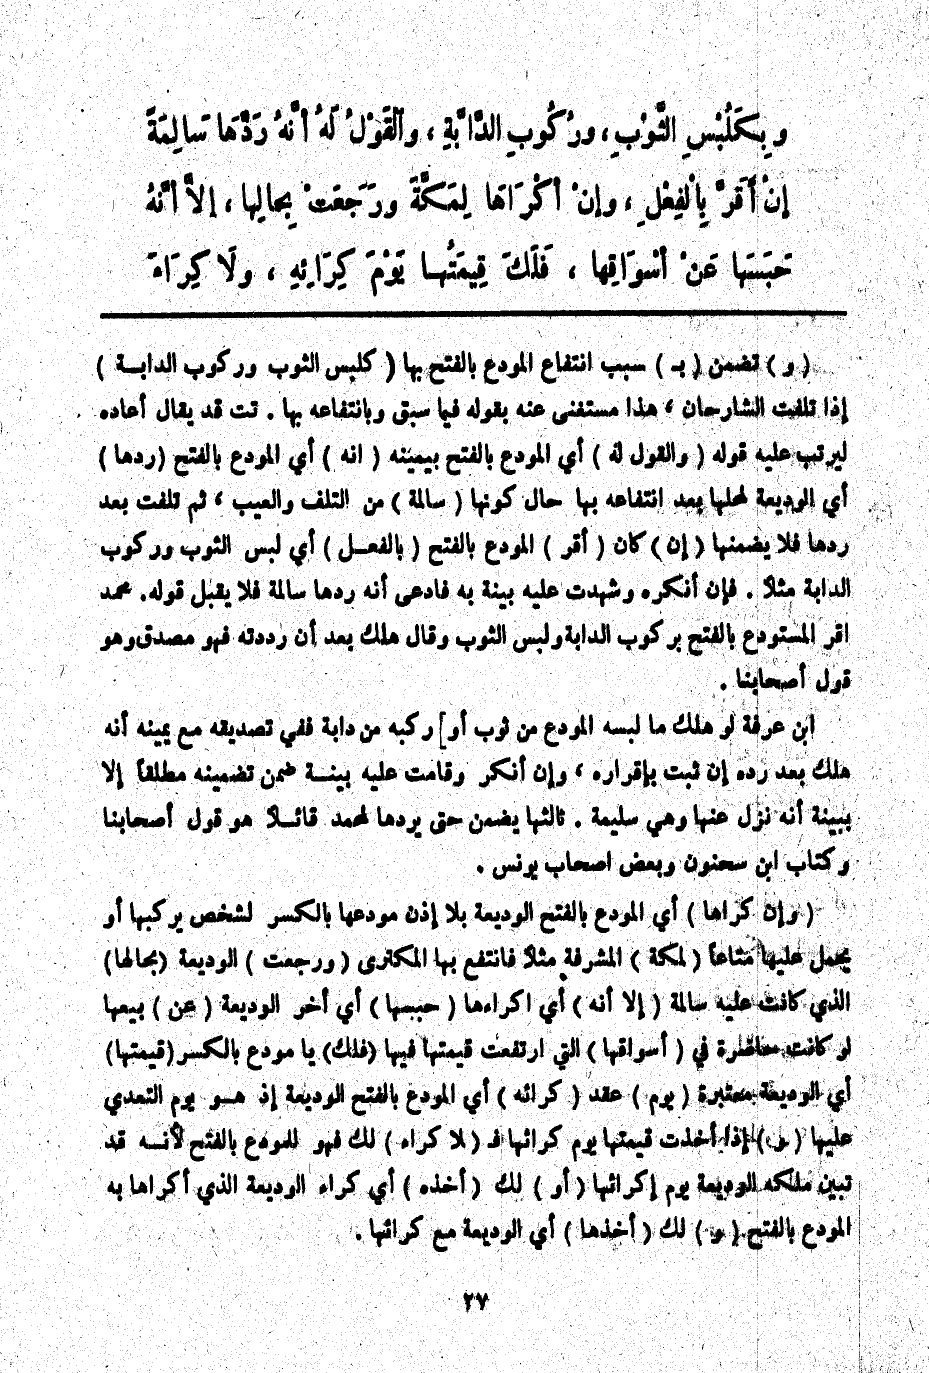 وبِكَلُبْسِ الثَّوْبِ، ورُكُوبِ الدَّابَّةِ، والْقَوْلُ لَهُ أنَّهُ رَدَّهَا سَالِمَةً
إنْ أقَرَّ بِالْفِعْلِ، وإنْ أكْرَاهَا لِمَكَّةَ ورَجَعَتْ بِحالِها، إلاَّ أنَّهُ
حَبَسَها عَنْ أسْوَاقِها ، فَلَكَ قِيمَتُها يَوْمَ كِرَائِهِ ، ولَا كِرَاءَ
( و ) تضمن ( بـ ) سبب انتفاع المودع بالفتح بها ( كلبس الثوب وركوب الدابة )
إذا تلفت الشارحان ، هذا مستغنى عنه بقوله فيما سبق وبانتفاعه بها . تت قد يقال أعاده
ليرتب عليه قوله ( والقول له ) أي المودع بالفتح بيمينه ( انه ) أي المودع بالفتح (ردها )
أي الوديعة لمحلها بعد انتفاعه بها حال كونها ( سالمة ) من التلف والعيب ، ثم تلفت بعد
ردها فلا يضمنها ( إن ) كان ( أقر ) المودع بالفتح ( بالفعـل ) أي لبس الثوب وركوب
الدابة مثلاً . فإن أنكره وشهدت عليه بينة به فادعى أنه ردها سالمة فلا يقبل قوله. محمد
اقر المستودع بالفتح بركوب الدابة ولبس الثوب وقال هلك بعد أن رددته فهو مصدق وهو
قول أصحابنا .
ابن عرفة لو هلك ما لبسه المودع من ثوب أو ركبه من دابة ففي تصديقه مع يمينه أنه
هلك بعد رده إن ثبت بإقراره ، وإن أنكر وقامت عليه بينـة ضمن تضمينه مطلقاً إلا
ببينة أنه نزل عنها وهي سليمة . ثالثها يضمن حتى يردها لمحمد قائـلاً هو قول أصحابنا
وكتاب ابن سحنون وبعض اصحاب يونس .
( وإن كراها ) أي المودع بالفتح الوديعة بلا إذن مودعها بالكسر لشخص يركبها أو
يحمل عليها متاعاً ( لمكة ) المشرفة مثلاً فانتفع بها المكترى ( ورجعت ) الوديعة (بحالها)
الذي كانت عليه سالمة ( إلا أنه ) أي اكراءها ( حبسها ) أي أخر الوديعة ( عن ) بيعها
لو كانت حاضرة في ( أسواقها ) التي ارتفعت قيمتها فيها (فلك) يا مودع بالكسر (قيمتها)
أي الوديعة معتبرة ( يوم ) عقد ( كرائه ) أي المودع بالفتح الوديعة إذ هـو يوم التعدي
عليها ( و ) إذا أخذت قيمتها يوم كرائها فـ ( لا كراء ) لك فهو للمودع بالفتح لأنـه قد
تبين ملكه الوديعة يوم إكرائها ( أو ) لك ( أخذه ) أي كراء الوديعة الذي أكراها به
المودع بالفتح ( و ) لك ( أخذها ) أي الوديعة مع كرائها .
٢٧